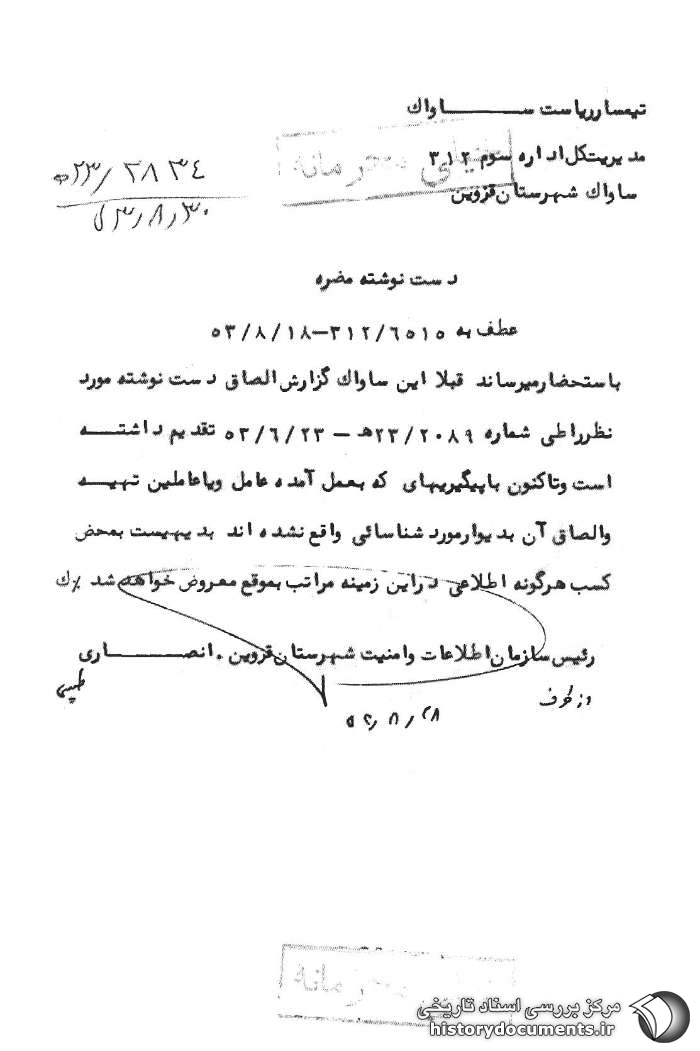 تیمسار ریاست ســـــــاواك
خیلی محرمانه
مدیریت کل اداره سوم ۳۱۲
ساواك شهرستان قزوین
۲۳/۲۸۳۴ هـ
۵۳/۸/۳۰
دست نوشته مضره
عطف به ۳۱۲/۶۵۱۵–۵۳/۸/۱۸
باستحضار میرساند قبلا این ساواك گزارش الصاق دست نوشته مورد
نظر را طی شماره ۲۳/۲۰۸۹هـ – ۵۳/۶/۲۳ تقدیم داشتـــه
است و تاکنون با پیگیریهای که بعمل آمده عامل و یا عاملین تهیـــه
و الصاق آن بدیوار مورد شناسائی واقع نشده اند بدیهیست بمحض
کسب هرگونه اطلاعی در این زمینه مراتب بموقع معروض خواهد شد ٪ك
رئیس سازمان اطلاعات و امنیت شهرستان قزوین . انصـــــاری
از طرف
۵۳/۸/۲۸
خیلی محرمانه
مرکز بررسی اسناد تاریخی
historydocuments.ir